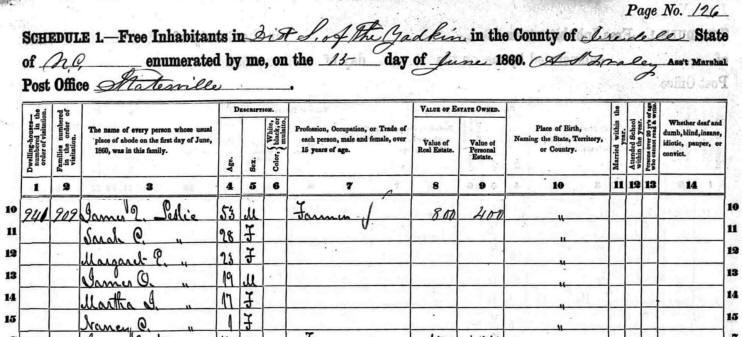 Page No. 126
SCHEDULE 1.—Free Inhabitants in Dist S. of the Yadkin in the County of Iredell State
of N.C. enumerated by me, on the 15 day of June 1860. Ass't Marshal
Post Office Statesville.
Dwelling-houses—numbered in the order of visitation.
Families numbered in the order of visitation.
The name of every person whose usual place of abode on the first day of June, 1860, was in this family.
DESCRIPTION.
Age.
Sex.
Color, { White, black, or mulatto.
Profession, Occupation, or Trade of each person, male and female, over 15 years of age.
VALUE OF ESTATE OWNED.
Value of Real Estate.
Value of Personal Estate.
Place of Birth, Naming the State, Territory, or Country.
Married within the year.
Attended School within the year.
Persons over 20 y'rs of age who cannot read & write.
Whether deaf and dumb, blind, insane, idiotic, pauper, or convict.
1 2 3 4 5 6 7 8 9 10 11 12 13 14
10 941 909 James Leslie 53 M Farmer 800 400 " 10
11 Sarah C. " 28 F " 11
12 Margaret E. " 23 F " 12
13 James O. " 19 M " 13
14 Martha J. " 17 F " 14
15 Nancy C. " 1 F " 15